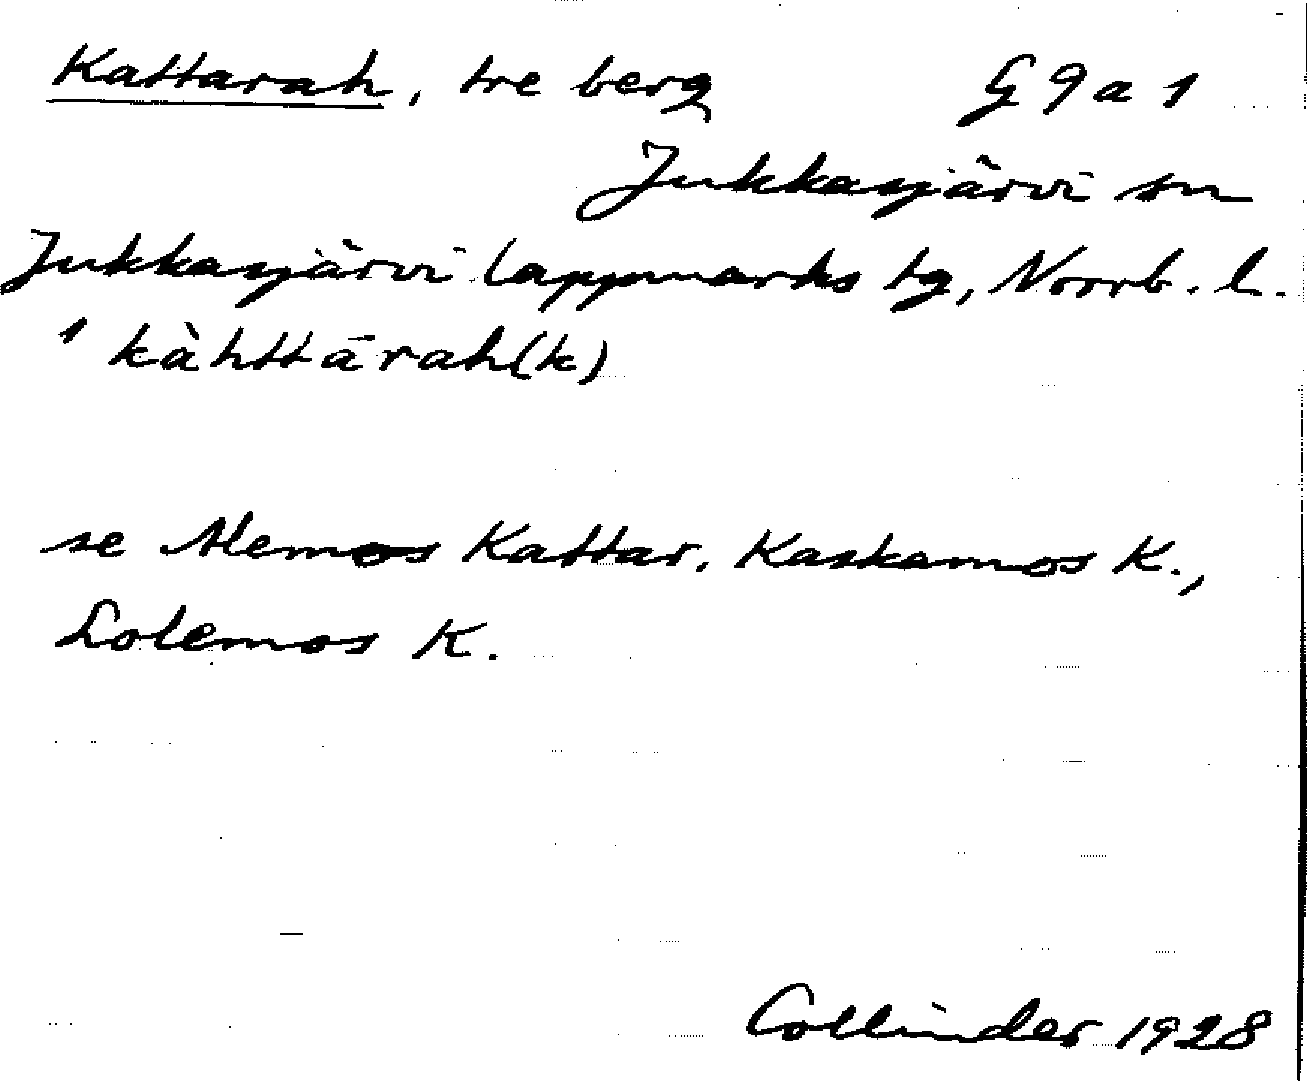 Kattarah, tre berg G 9 a 1
Jukkasjärvi sn
Jukkasjärvi lappmarks tg, Norrb. l.
' kàhttārah(k)
se Alemos Kattar, Kaskamos K.,
Lolemos K.
Collinder 1928